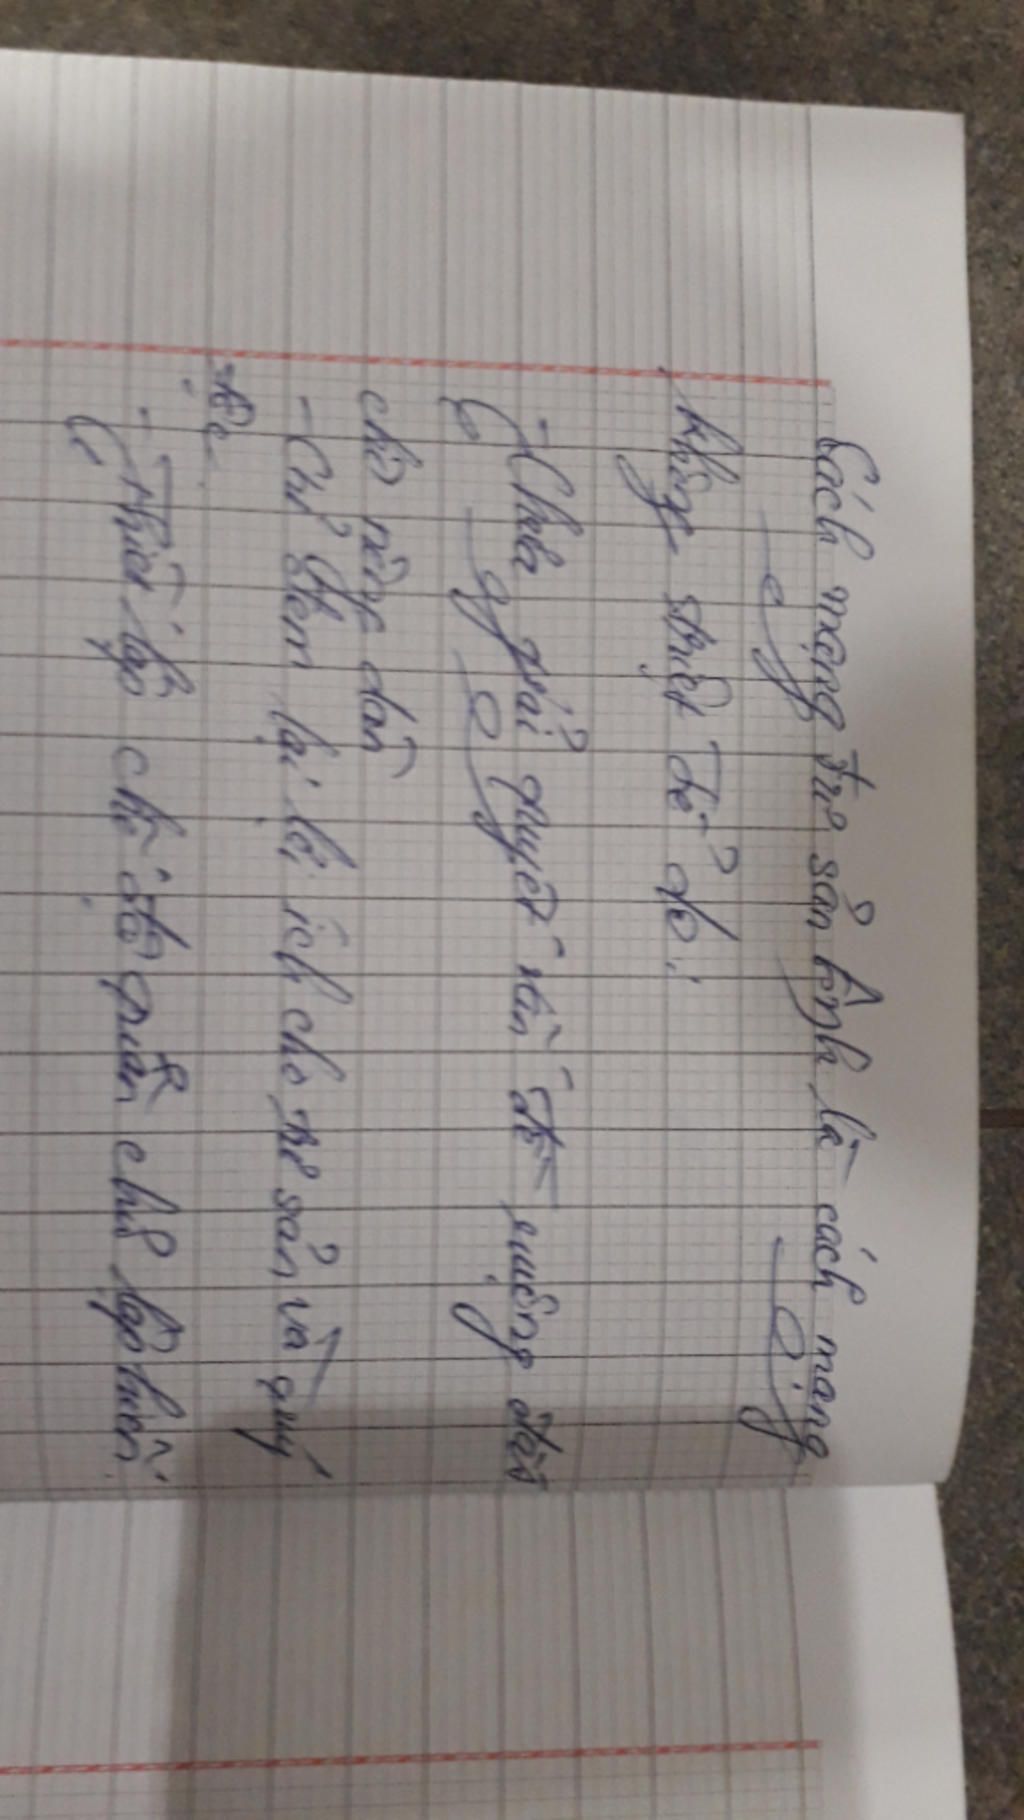 Cách mạng tư sản Anh là cách mạng
không triệt để do:
- Chưa giải quyết vấn đề ruộng đất
cho nông dân
- Chỉ đem lại lợi ích cho tư sản và quý
tộc.
- Thiết lập chế độ quân chủ lập hiến.